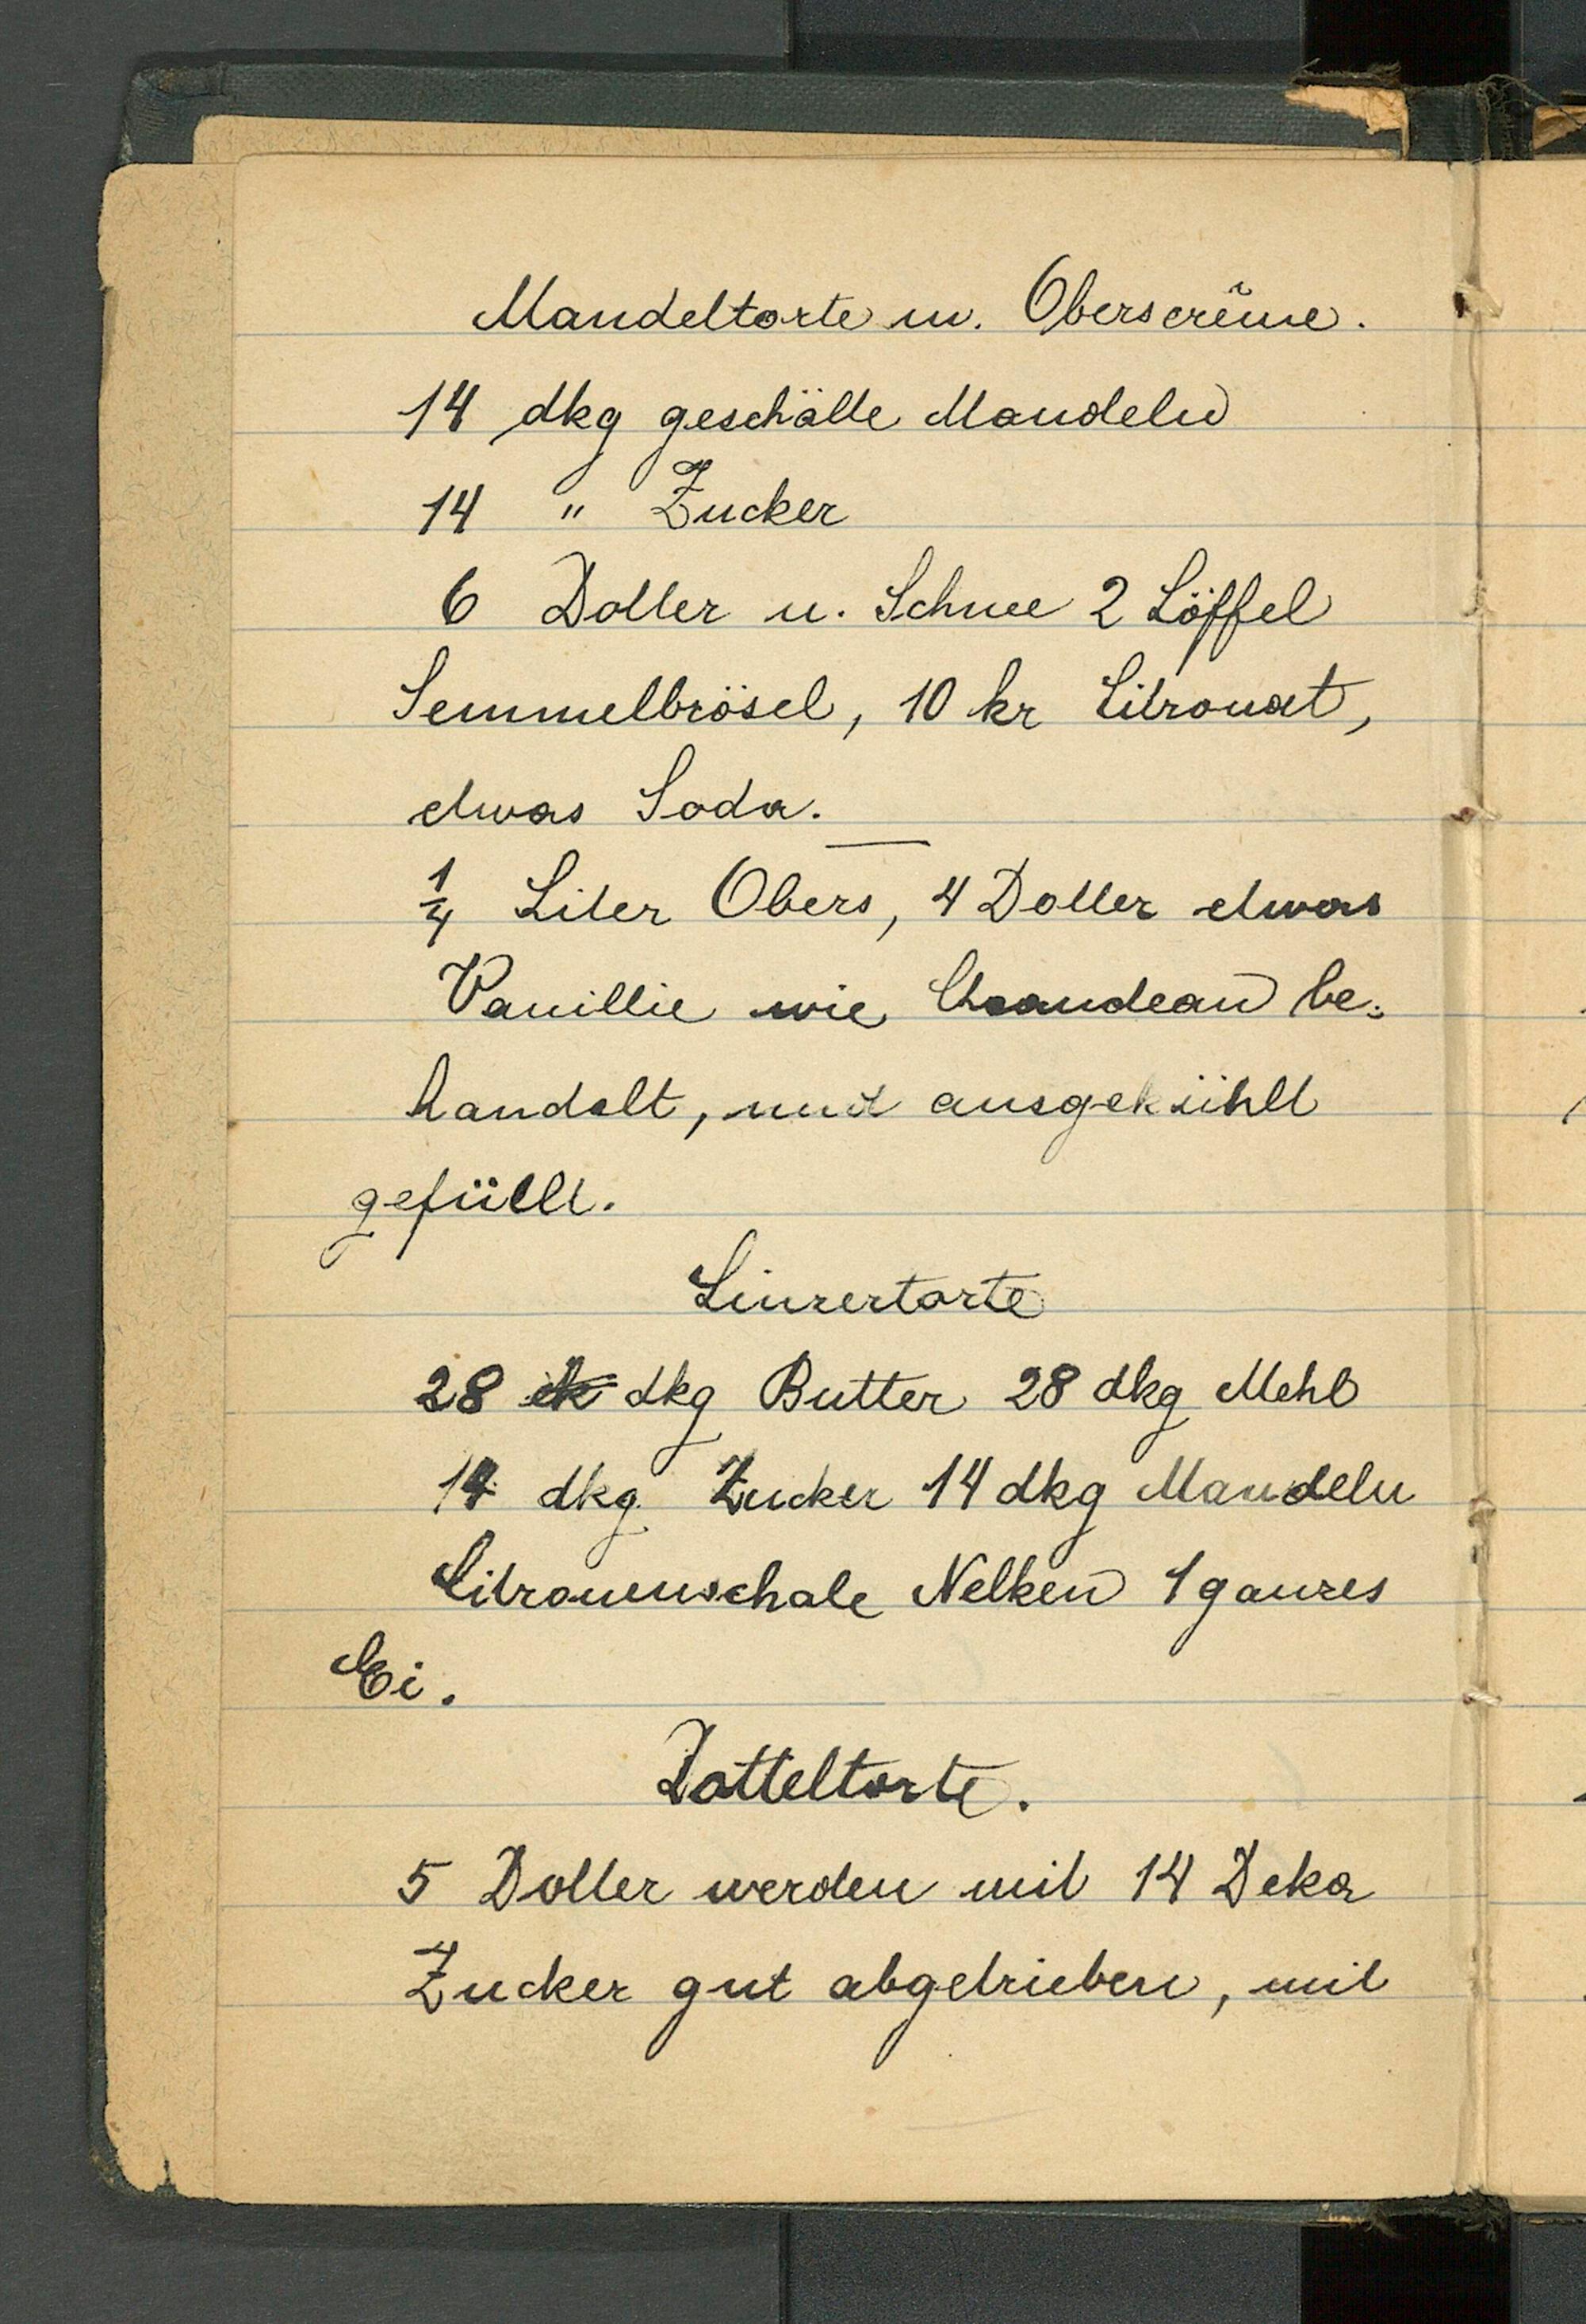 Mandeltorte m. Oberscrême.
14 dkg geschälte Mandeln
14 " Zucker
6 Dotter u. Schnee 2 Löffel
Semmelbrösel, 10 kr Citronat,
etwas Soda.
1/4 Liter Obers, 4 Dotter etwas
Vanillie wie Chaudeau be-
handelt, und ausgekühlt
gefüllt.
Linzertorte
28 dkg Butter 28 dkg Mehl
14 dkg Zucker 14 dkg Mandeln
Citronenschale Nelken 1 ganzes
Ei.
Datteltorte.
5 Dotter werden mit 14 Deka
Zucker gut abgetrieben, mit